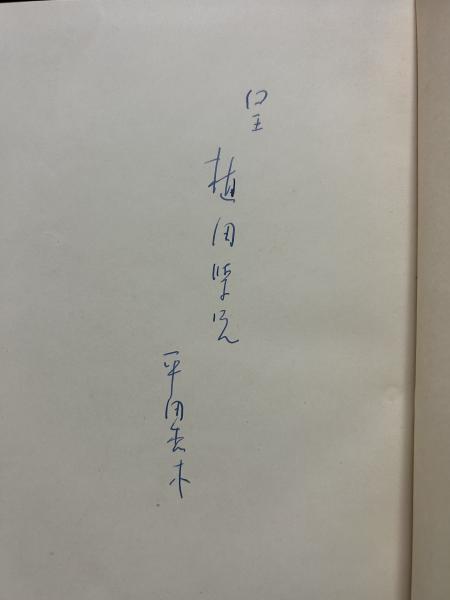 呈
植田学兄
平田 木